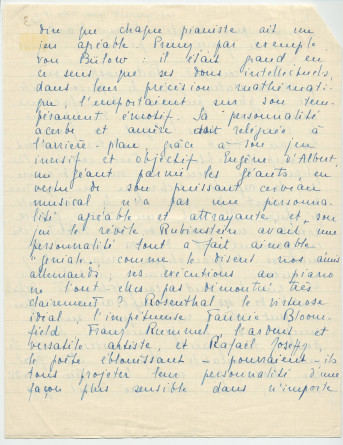 3
dire que chaque pianiste ait un
jeu agréable. Prenez par exemple
von Bülow : il était grand en
ce sens que ses dons intellectuels,
dans leur précision mathémati-
que, l'emportaient sur son tem-
pérament émotif. Sa personnalité
acerbe et amère doit reléguée à
l'arrière-plan, grâce à son jeu
incisif et objectif. Eugène d'Albert,
un géant parmi les géants, en
vertu de son puissant cerveau
musical n'a pas une personna-
lité agréable et attrayante et son
jeu le révèle. Rubinstein avait une
personnalité tout à fait aimable
"géniale" comme le disent nos amis
allemands, ses exécutions au piano
ne l'ont-elles pas démontré très
clairement ? Rosenthal le virtuose
idéal, l'impétueuse Fannie Bloom-
field, Franz Rummel, l'ardent et
versatile artiste, et Rafael Joseffy,
le poète éblouissant – pourraient-ils
tous projeter leur personnalité d'une
façon plus sensible dans n'importe